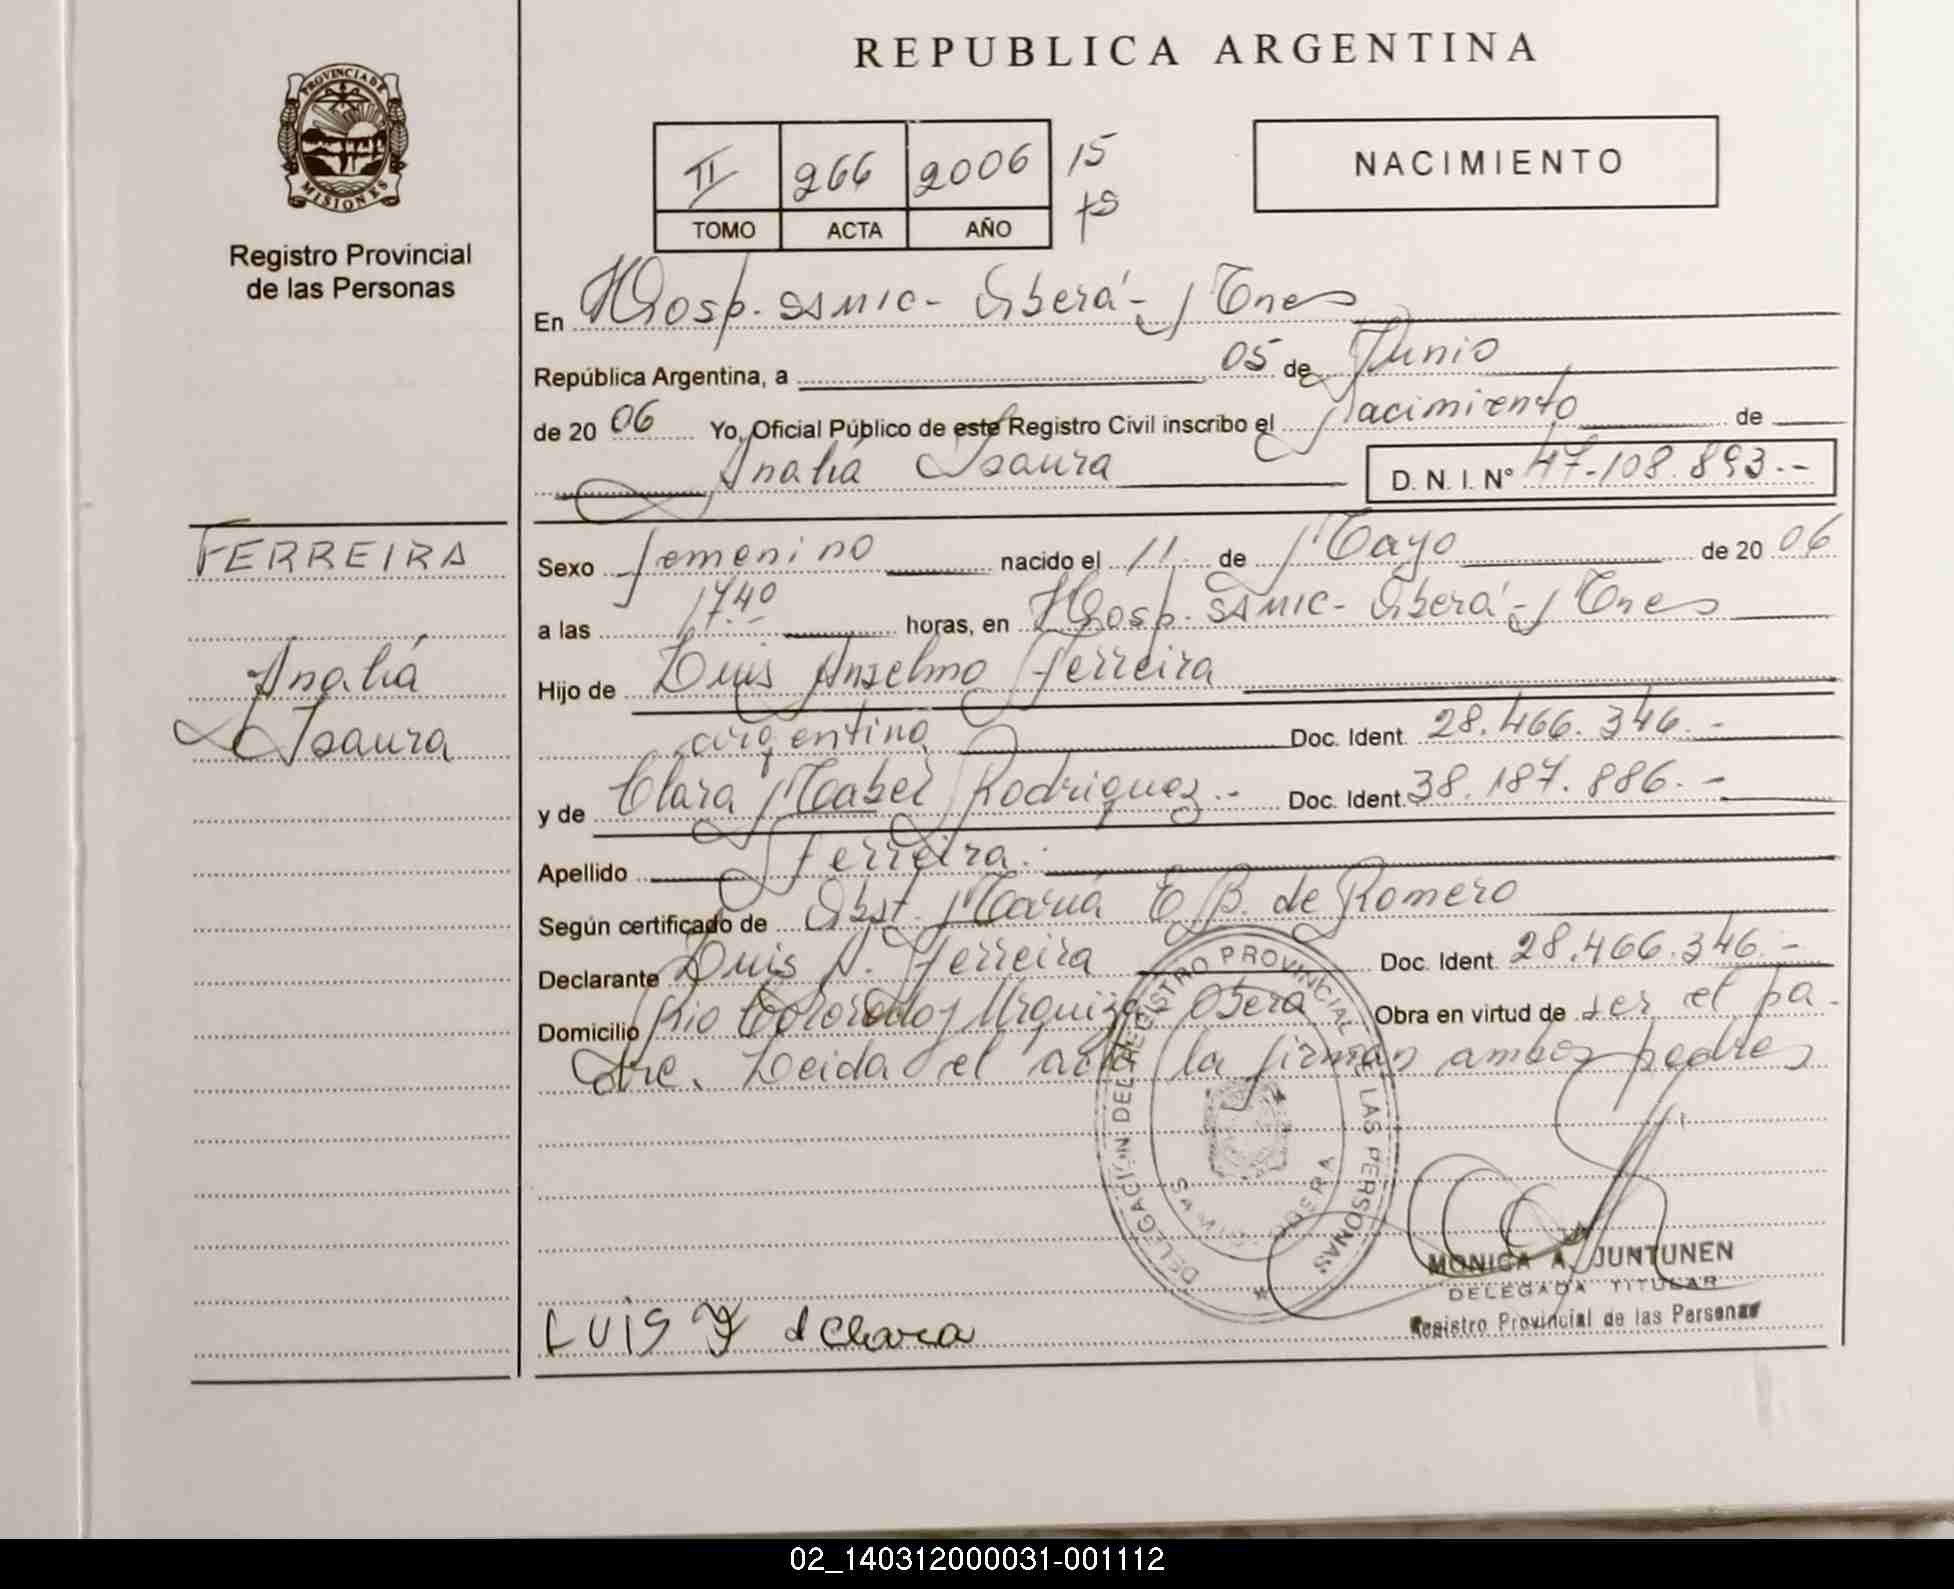 REPUBLICA ARGENTINA
PROVINCIA DE
MISIONES
Registro Provincial
de las Personas
II 266 2006 15
TOMO ACTA AÑO
NACIMIENTO
En Hosp. SAMIC - Oberá - Mnes
República Argentina, a 05 de Junio
de 20 06 Yo, Oficial Público de este Registro Civil inscribo el Nacimiento de
Analía Isaura D. N. I. Nº 47.108.893.-
FERREIRA
Analía
Isaura
Sexo femenino nacido el 11 de Mayo de 20 06
a las 17.40 horas, en Hosp. SAMIC - Oberá - Mnes
Hijo de Luis Anselmo Ferreira
argentino Doc. Ident. 28.466.346.-
y de Clara Mabel Rodriguez.- Doc. Ident. 38.187.886.-
Apellido Ferreira.
Según certificado de Obst. María E. B. de Romero
Declarante Luis A. Ferreira Doc. Ident. 28.466.346.-
Domicilio Rio Colorado y Urquiza - Oberá Obra en virtud de ser el pa-
dre. Leida el acta la firman ambos padres
DELEGACIÓN DEL REGISTRO PROVINCIAL DE LAS PERSONAS
MONICA A. JUNTUNEN
DELEGADA TITULAR
Registro Provincial de las Personas
LUIS F clara
02_140312000031-001112